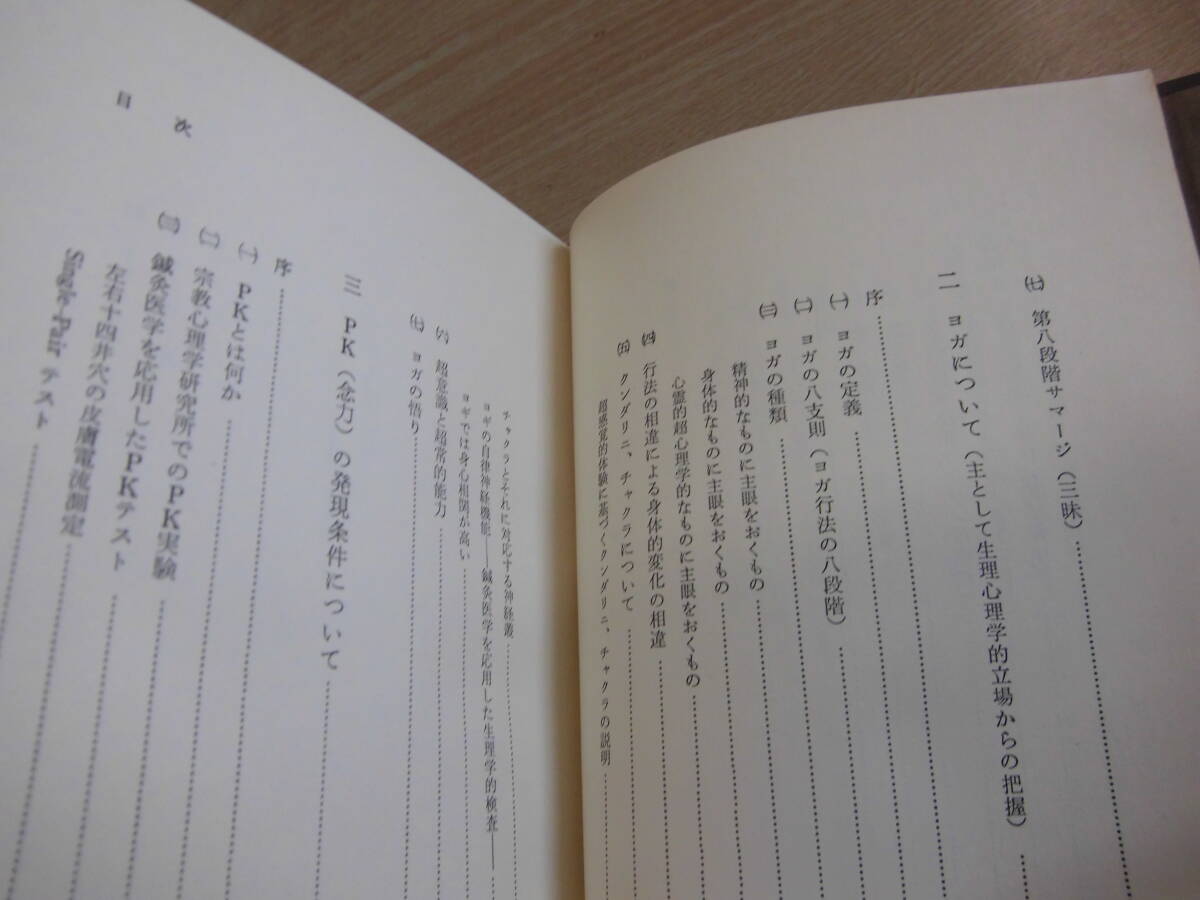 ㈦ 第八段階サマージ（三昧）
二 ヨガについて（主として生理心理学的立場からの把握）
序
㈠ ヨガの定義
㈡ ヨガの八支則（ヨガ行法の八段階）
㈢ ヨガの種類
精神的なものに主眼をおくもの
身体的なものに主眼をおくもの
心霊的超心理学的なものに主眼をおくもの
㈣ 行法の相違による身体的変化の相違
㈤ クンダリニ、チャクラについて
超感覚的体験に基づくクンダリニ、チャクラの説明
チャクラとそれに対応する神経叢
ヨギの自律神経機能——鍼灸医学を応用した生理学的検査——
ヨギでは身心相関が高い
㈥ 超意識と超常的能力
㈦ ヨガの悟り
三 PK（念力）の発現条件について
序
㈠ PKとは何か
㈡ 宗教心理学研究所でのPK実験
㈢ 鍼灸医学を応用したPKテスト
左右十四井穴の皮膚電流測定
Single-Pair テスト
目次